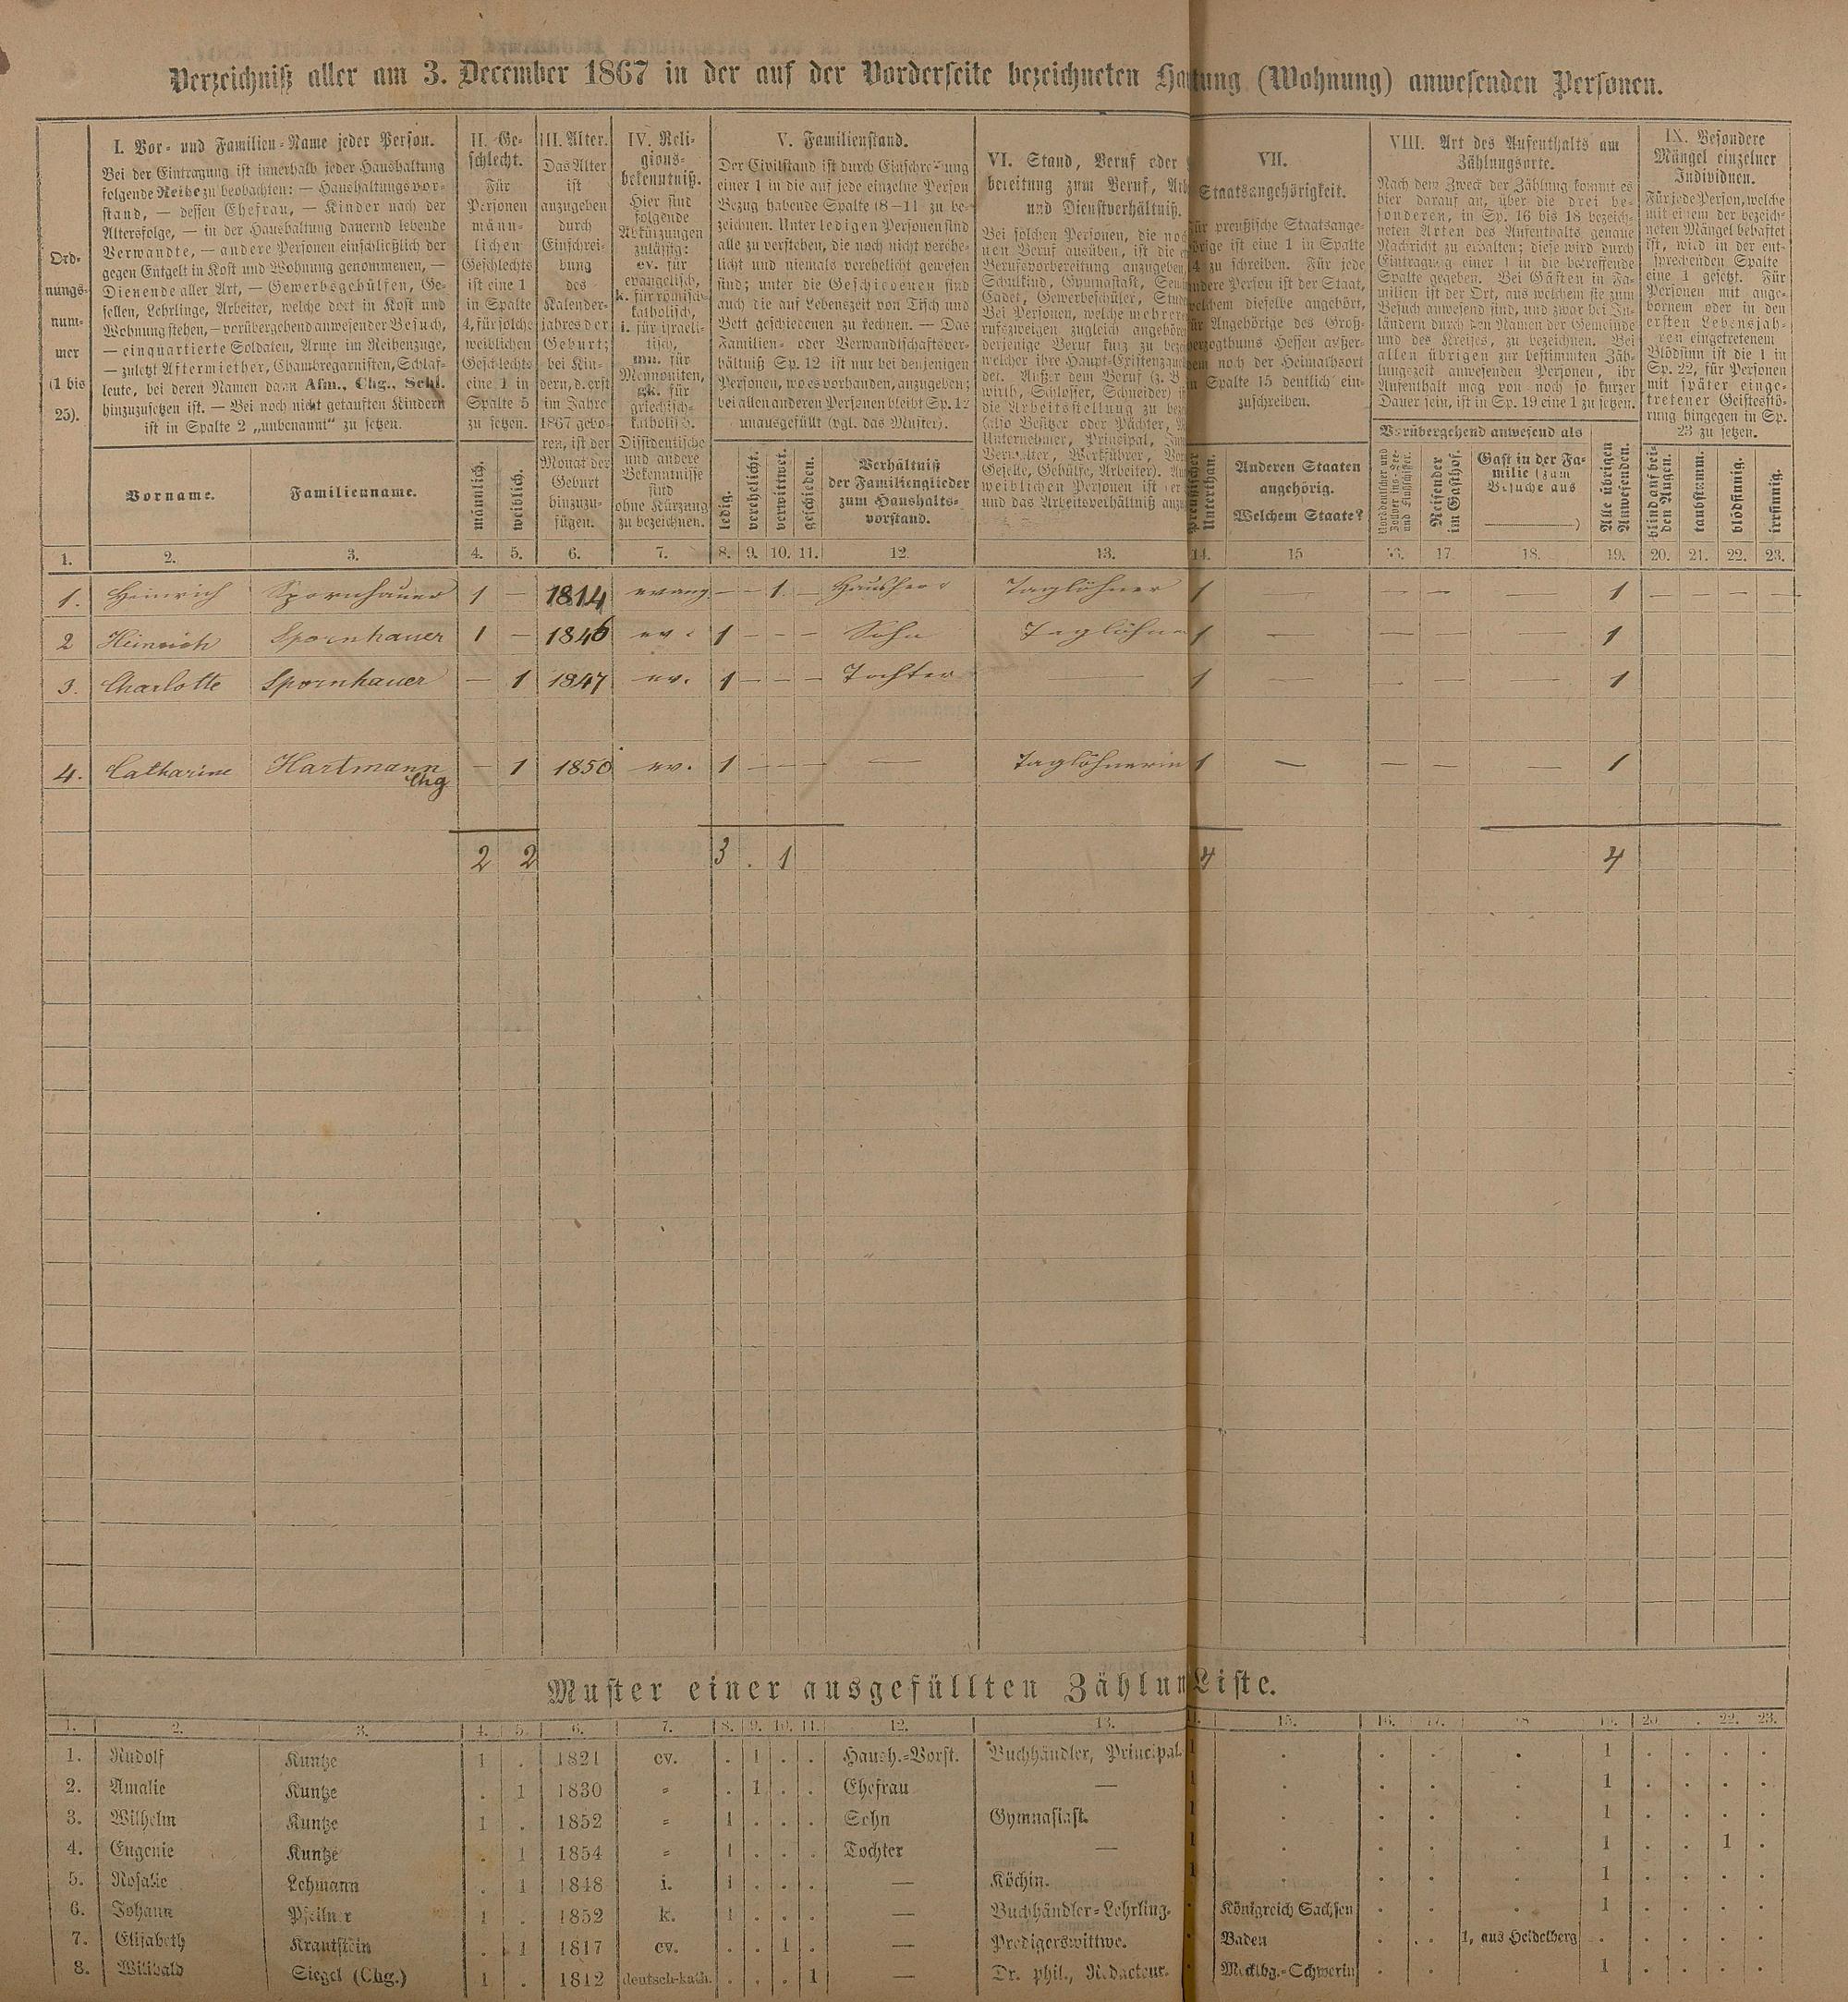 Verzeichniß aller am 3. December 1867 in der auf der Vorderseite bezeichneten Haltung (Wohnung) anwesenden Personen.
Ord-
nungs-
num-
mer
(1 bis
25).
I. Vor- und Familien-Name jeder Person.
Bei der Eintragung ist innerhalb jeder Haushaltung
folgende Reihe zu beobachten: — Haushaltungsvor-
stand, — dessen Ehefrau, — Kinder nach der
Altersfolge, — in der Haushaltung dauernd lebende
Verwandte, — andere Personen einschließlich der
gegen Entgelt in Kost und Wohnung genommenen, —
Dienende aller Art, — Gewerbsgehülfen, Ge-
sellen, Lehrlinge, Arbeiter, welche dort in Kost und
Wohnung stehen, — vorübergehend anwesender Besuch,
— einquartierte Soldaten, Arme im Reihenzuge,
— zuletzt Aftermiether, Chambregarnisten, Schlaf-
leute, bei deren Namen dann Afm., Chg., Schl.
hinzuzusetzen ist. — Bei noch nicht getauften Kindern
ist in Spalte 2 „unbenannt“ zu setzen.
Vorname.
Familienname.
II. Ge-
schlecht.
Für
Personen
männ-
lichen
Geschlechts
ist eine 1
in Spalte
4, für solche
weiblichen
Geschlechts
eine 1 in
Spalte 5
zu setzen.
männlich.
weiblich.
III. Alter.
Das Alter
ist
anzugeben
durch
Einschrei-
bung
des
Kalender-
jahres der
Geburt;
bei Kin-
dern, d. erst
im Jahre
1867 gebo-
ren, ist der
Monat der
Geburt
hinzuzu-
fügen.
IV. Reli-
gions-
bekenntniß.
Hier sind
folgende
Abkürzungen
zulässig:
ev. für
evangelisch,
k. für römisch-
katholisch,
i. für israeli-
tisch,
mn. für
Mennoniten,
gk. für
griechisch-
katholisch.
Dissidentische
und andere
Bekenntnisse
sind
ohne Kürzung
zu bezeichnen.
V. Familienstand.
Der Civilstand ist durch Einschreibung
einer 1 in die auf jede einzelne Person
Bezug habende Spalte (8—11 zu be-
zeichnen. Unter ledigen Personen sind
alle zu verstehen, die noch nicht verehe-
licht und niemals verehelicht gewesen
sind; unter die Geschiedenen sind
auch die auf Lebenszeit von Tisch und
Bett geschiedenen zu rechnen. — Das
Familien- oder Verwandtschaftsver-
hältniß Sp. 12 ist nur bei denjenigen
Personen, wo es vorhanden, anzugeben;
bei allen anderen Personen bleibt Sp. 12
unausgefüllt (vgl. das Muster).
ledig.
verehelicht.
verwittwet.
geschieden.
Verhältniß
der Familienglieder
zum Haushalts-
vorstand.
VI. Stand, Beruf oder
bereitung zum Beruf, Arb
und Dienstverhältniß.
Bei solchen Personen, die noch
nen Beruf ausüben, ist die
Berufsvorbereitung anzugeben,
Schulkind, Gymnasiast, Sem
Cadet, Gewerbeschüler, Stude
Bei Personen, welche mehrere
rufszweigen zugleich angehören
derjenige Beruf kurz zu beze
welcher ihre Haupt-Existenzque
det. Außer dem Beruf (z. B.
wirth, Schlosser, Schneider) ist
die Arbeitsstellung zu bez
(also Besitzer oder Pächter,
Unternehmer, Principal,
Verwalter, Werkführer,
Geselle, Gehülfe, Arbeiter).
weiblichen Personen ist der
und das Arbeitsverhältniß anzu
VII.
Staatsangehörigkeit.
Für preußische Staatsange-
hörige ist eine 1 in Spalte
4 zu schreiben. Für jede
andere Person ist der Staat,
welchem dieselbe angehört,
für Angehörige des Groß-
herzogthums Hessen außer-
dem noch der Heimathsort
in Spalte 15 deutlich ein-
zuschreiben.
preußischer
Unterthan.
Anderen Staaten
angehörig.
Welchem Staate?
VIII. Art des Aufenthalts am
Zählungsorte.
Nach dem Zweck der Zählung kommt es
hier darauf an, über die drei be-
sonderen, in Sp. 16 bis 18 bezeich-
neten Arten des Aufenthalts genaue
Nachricht zu erhalten; diese wird durch
Eintragung einer 1 in die betreffende
Spalte gegeben. Bei Gästen in Fa-
milien ist der Ort, aus welchem sie zum
Besuch anwesend sind, und zwar bei In-
ländern durch den Namen der Gemeinde
und des Kreises, zu bezeichnen. Bei
allen übrigen zur bestimmten Zäh-
lungszeit anwesenden Personen, ihr
Aufenthalt mag von noch so kurzer
Dauer sein, ist in Sp. 19 eine 1 zu setzen.
Vorübergehend anwesend als
Norddeutscher und
Zollvereins-See-
und Flußschiffer.
Reisender
im Gasthof.
Gast in der Fa-
milie (zum
Besuche aus
)
Alle übrigen
Anwesenden.
IX. Besondere
Mängel einzelner
Individuen.
Für jede Person, welche
mit einem der bezeich-
neten Mängel behaftet
ist, wird in der ent-
sprechenden Spalte
eine 1 gesetzt. Für
Personen mit ange-
bornem oder in den
ersten Lebensjah-
ren eingetretenem
Blödsinn ist die 1 in
Sp. 22, für Personen
mit später einge-
tretener Geistesstö-
rung hingegen in Sp.
23 zu setzen.
blind auf bei-
den Augen.
taubstumm.
blödsinnig.
irrsinnig.
1. 2. 3. 4. 5. 6. 7. 8. 9. 10. 11. 12 13. 14. 15 16. 17. 18. 19. 20. 21. 22. 23.
1. Heinrich Spornhauer 1 — 1814 evang. — — 1 — Hausherr Taglöhner 1 — — — — 1 — — — —
2 Heinrich Spornhauer 1 — 1846 ev. 1 — — — Sohn Taglöhner 1 — — — — 1
3. Charlotte Spornhauer — 1 1847 ev. 1 — — — Tochter — 1 — — — — 1
4. Catharine Hartmann — 1 1850 ev. 1 — — — — Taglöhnerin 1 — — — — 1
Chg
2 2 3 . 1 4 4
Muster einer ausgefüllten Zählun Liste.
1. 2. 3. 4. 5. 6. 7. 8. 9. 10. 11. 12. 13. 15. 16. 17. 18 19. 20 . 22. 23.
1. Rudolf Kuntze 1 . 1821 ev. . 1 . . Haush.-Vorst. Buchhändler, Principal. 1 . . . . 1 . . . .
2. Amalie Kuntze . 1 1830 = . 1 . . Ehefrau — 1 . . . . 1 . . . .
3. Wilhelm Kuntze 1 . 1852 = 1 . . . Sohn Gymnasiast. 1 . . . . 1 . . . .
4. Eugenie Kuntze . 1 1854 = 1 . . . Tochter — 1 . . . . 1 . . 1 .
5. Rosalie Lehmann . 1 1848 i. 1 . . . — Köchin. 1 . . . . 1 . . . .
6. Johann Pfeilner 1 . 1852 k. 1 . . . — Buchhändler-Lehrling. . Königreich Sachsen . . . 1 . . . .
7. Elisabeth Krautstein . 1 1817 ev. . . 1 . — Predigerswittwe. . Baden . . 1, aus Heidelberg . . . . .
8. Wilibald Siegel (Chg.) 1 . 1812 deutsch-kath. . . . 1 — Dr. phil., Redacteur. . Mecklbg.-Schwerin . . . 1 . . . .